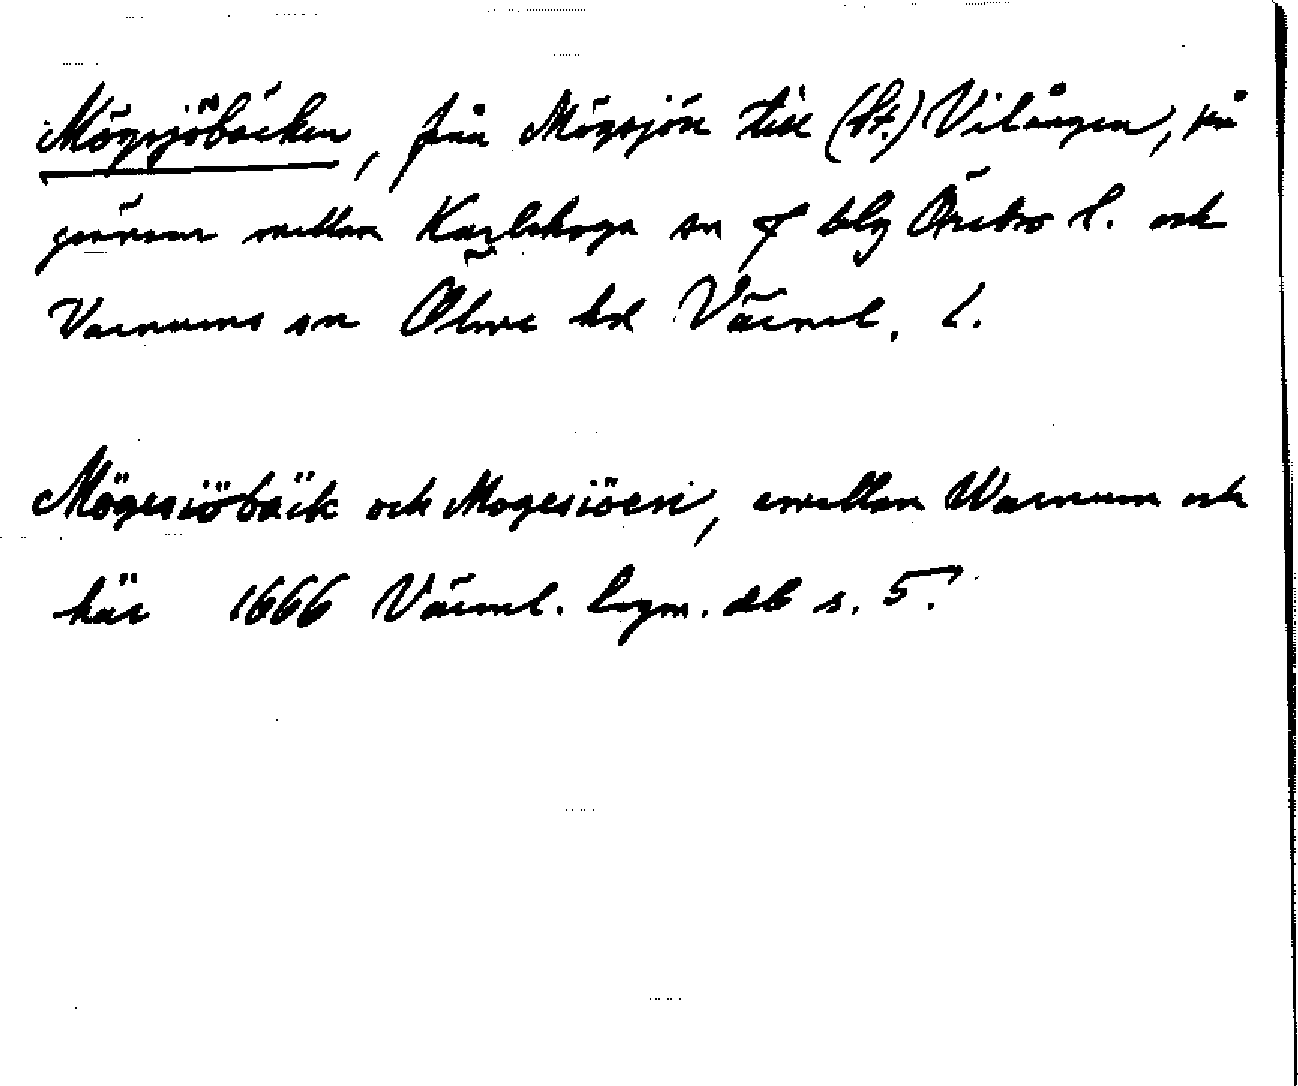 Mögsjöbäcken, från Mögsjön till (St.) Vilången, på
gränsen mellan Karlskoga sn f blg Örebro l. och
Varnums sn Ölme hd Värml. l.
Mögesiöbäck och Mogesiöen, emellan Warnum och
här 1666 Värml. lagm. db s. 5.